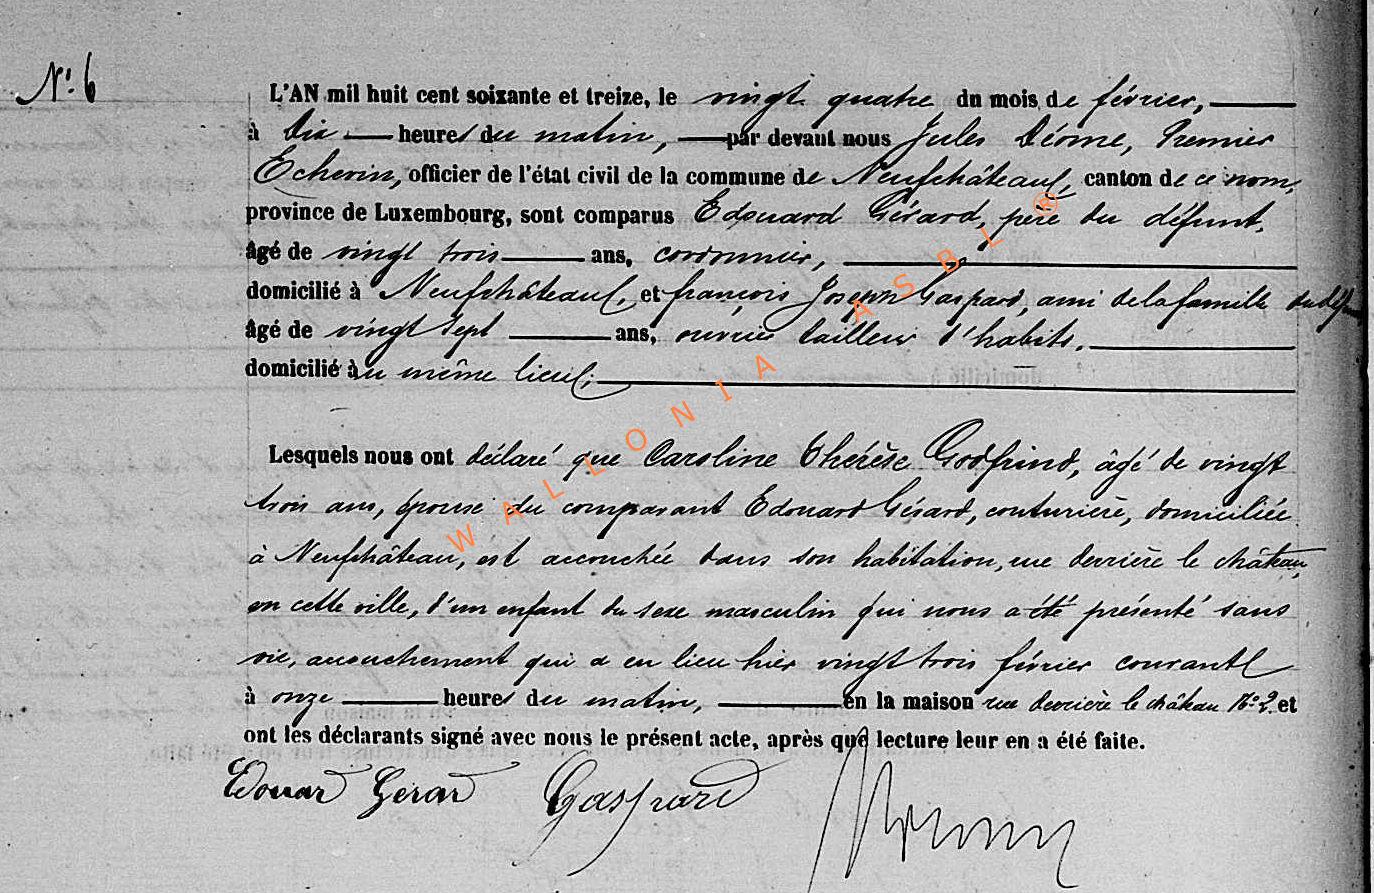 N°. 6
L'AN mil huit cent soixante et treize, le vingt quatre du mois de février,
à dix heures du matin, par devant nous Jules Déome, Premier
Echevin, officier de l'état civil de la commune de Neufchâteau, canton de ce nom,
province de Luxembourg, sont comparus Edouard Gérard, père du défunt,
âgé de vingt trois ans, cordonnier,
domicilié à Neufchâteau, et françois Joseph Gaspard, ami de la famille du
âgé de vingt sept ans, ouvrier tailleur d'habits,
domicilié au même lieu;
Lesquels nous ont déclaré que Caroline Thérèse Godfrind, âgé de vingt
trois ans, épouse du comparant Edouard Gérard, couturière, domiciliée
à Neufchâteau, est accouchée dans son habitation, rue derrière le château,
en cette ville, d'un enfant du sexe masculin qui nous a été présenté sans
vie, accouchement qui a eu lieu hier vingt trois février courant
à onze heures du matin, en la maison rue derrière le château N° 2 et
ont les déclarants signé avec nous le présent acte, après que lecture leur en a été faite.
Edouard Gérard Gaspard
WALLONIA ASBL ®